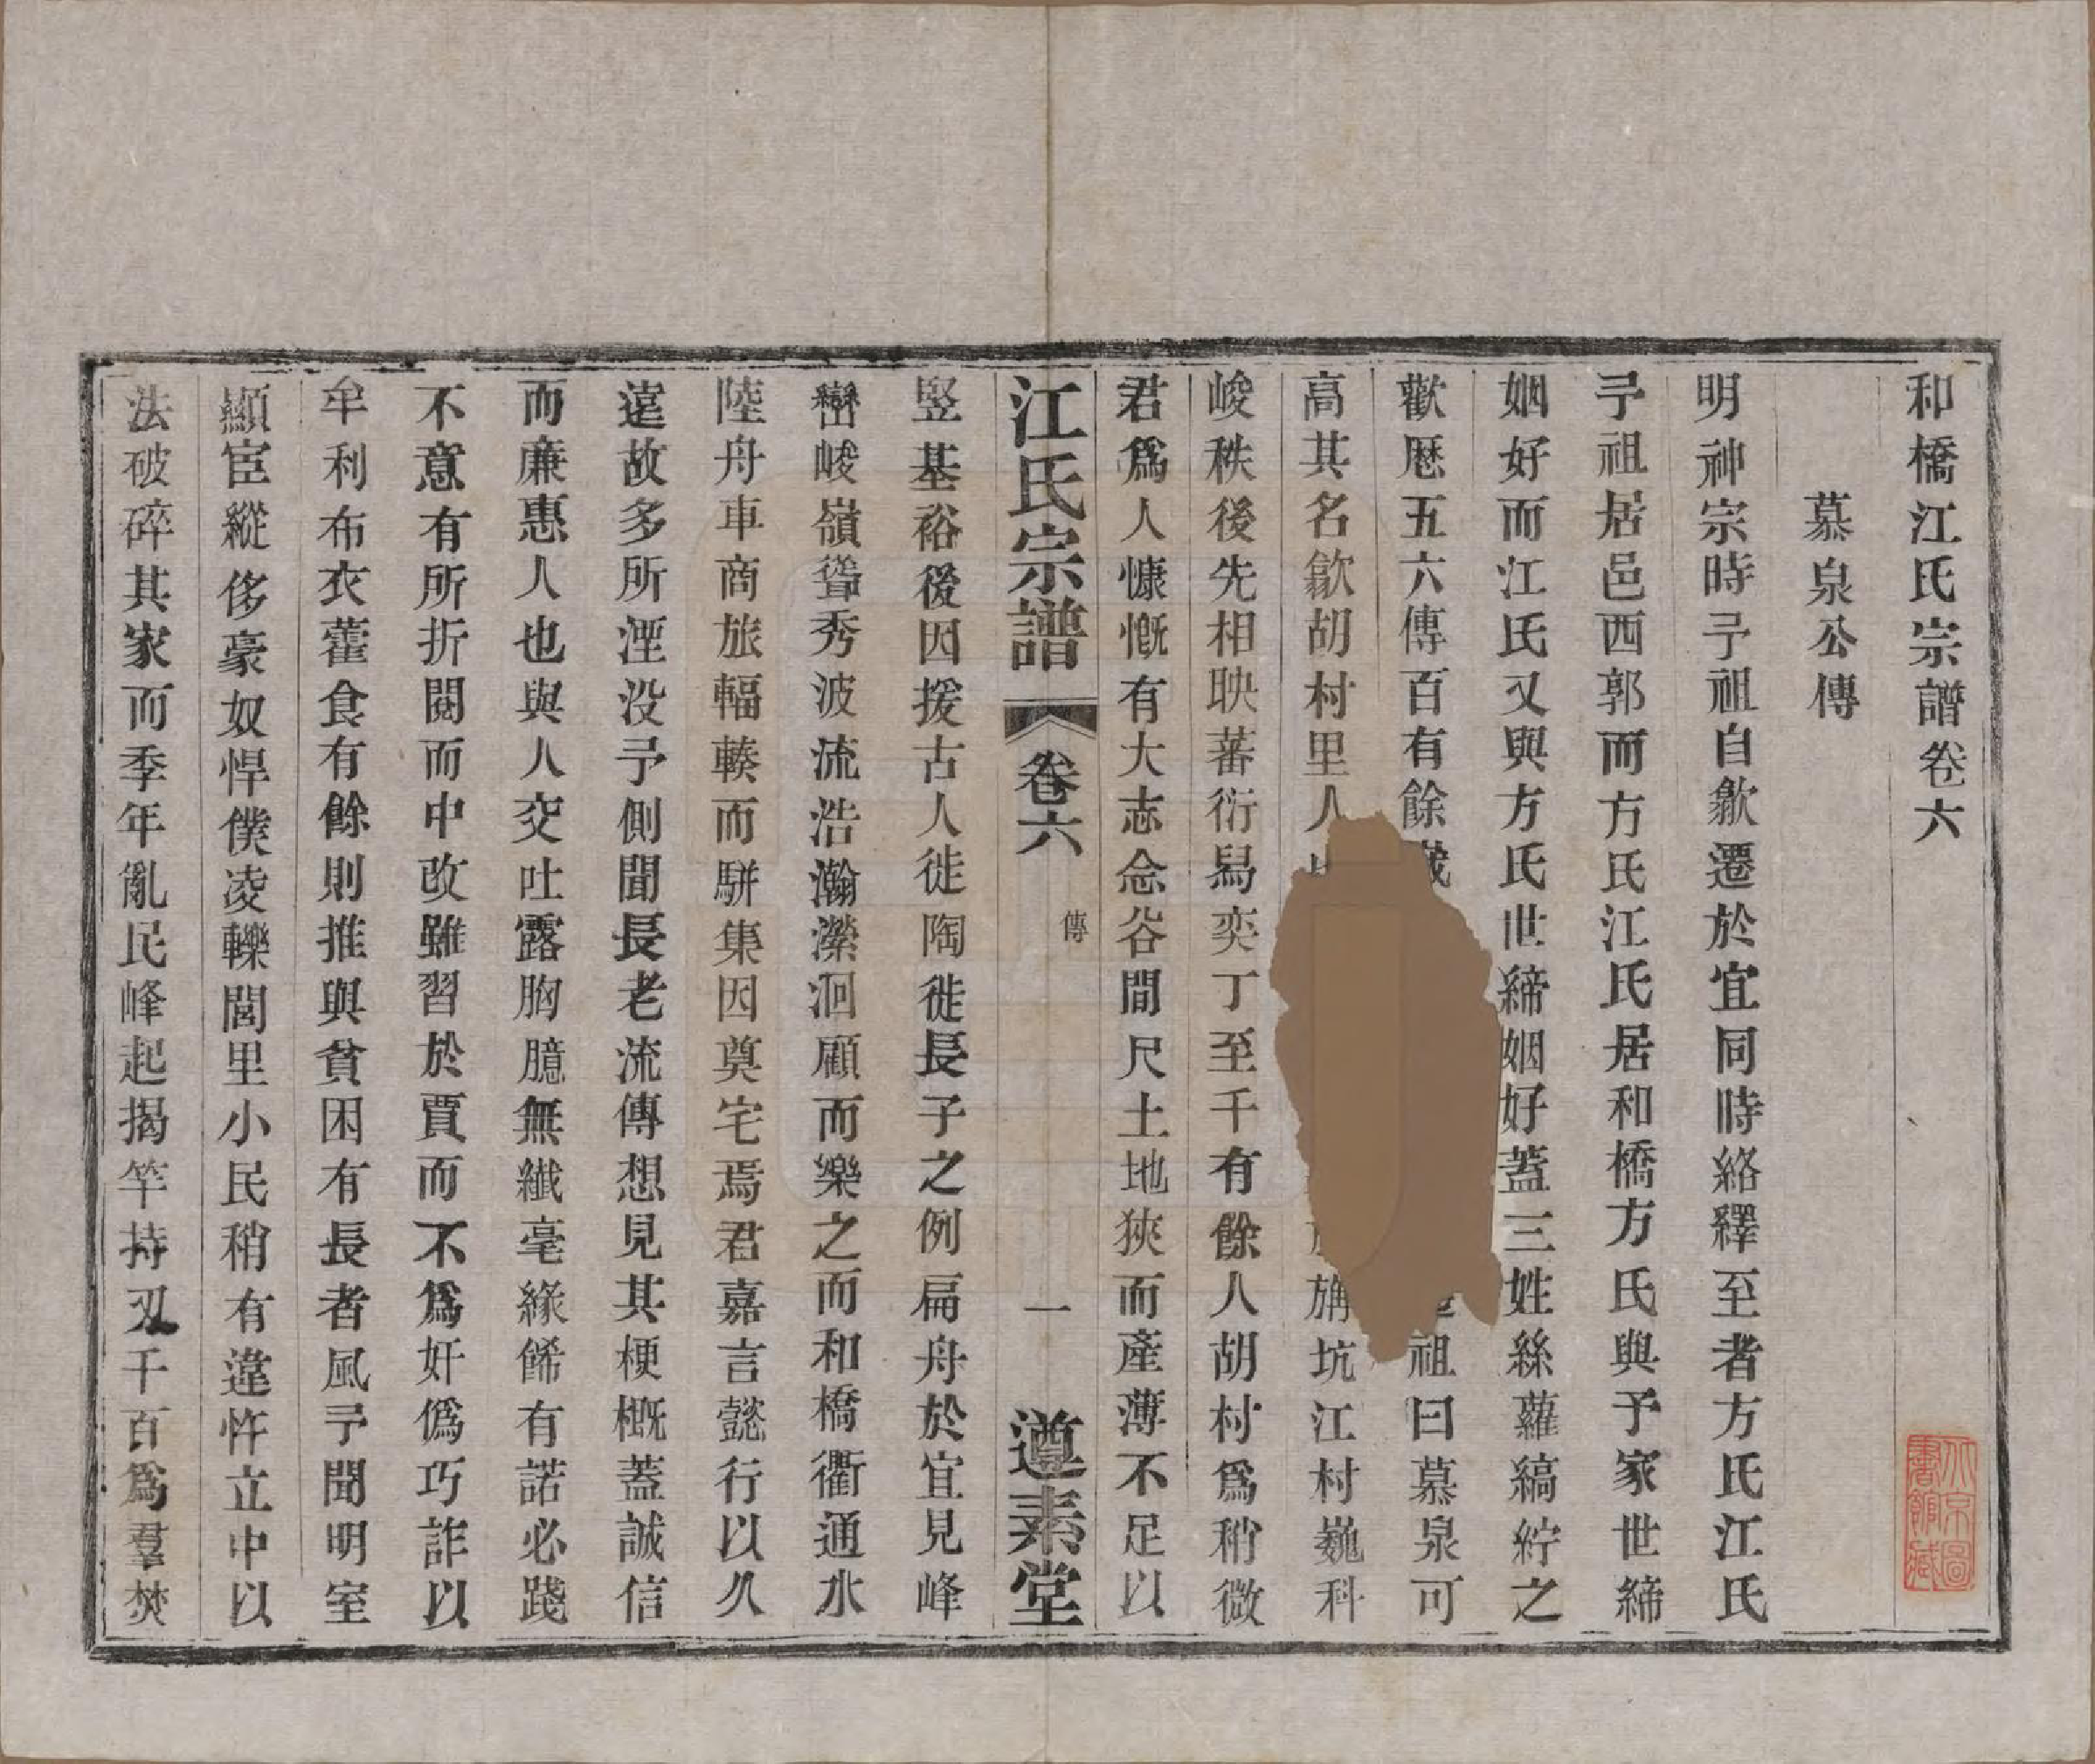 和橋江氏宗譜卷六
慕泉公傳
明神宗時予祖自歙遷於宜同時絡繹至者方氏江氏
予祖居邑西郭而方氏江氏居和橋方氏與予家世締
姻好而江氏又與方氏世締姻好蓋三姓絲蘿縞紵之
歡歷五六傳百有餘歲 祖曰慕泉可
高其名歙胡村里人也 旃坑江村巍科
峻秩後先相映蕃衍舄奕丁至千有餘人胡村爲稍微
君爲人慷慨有大志念谷間尺土地狹而產薄不足以
江氏宗譜 卷六 傳 一 遵素堂
竪基裕後因援古人徙陶徙長子之例扁舟於宜見峰
巒峻嶺聳秀波流浩瀚瀠洄顧而樂之而和橋衢通水
陸舟車商旅輻輳而駢集因奠宅焉君嘉言懿行以久
遠故多所湮没予側聞長老流傳想見其梗概蓋誠信
而廉惠人也與人交吐露胸臆無纖毫緣餙有諾必踐
不意有所折閱而中改雖習於賈而不爲奸僞巧詐以
牟利布衣藿食有餘則推與貧困有長者風予聞明室
顯宦縱侈豪奴悍僕凌轢閭里小民稍有違忤立中以
法破碎其家而季年亂民峰起揭竿持刄千百爲羣焚
北京圖書館藏